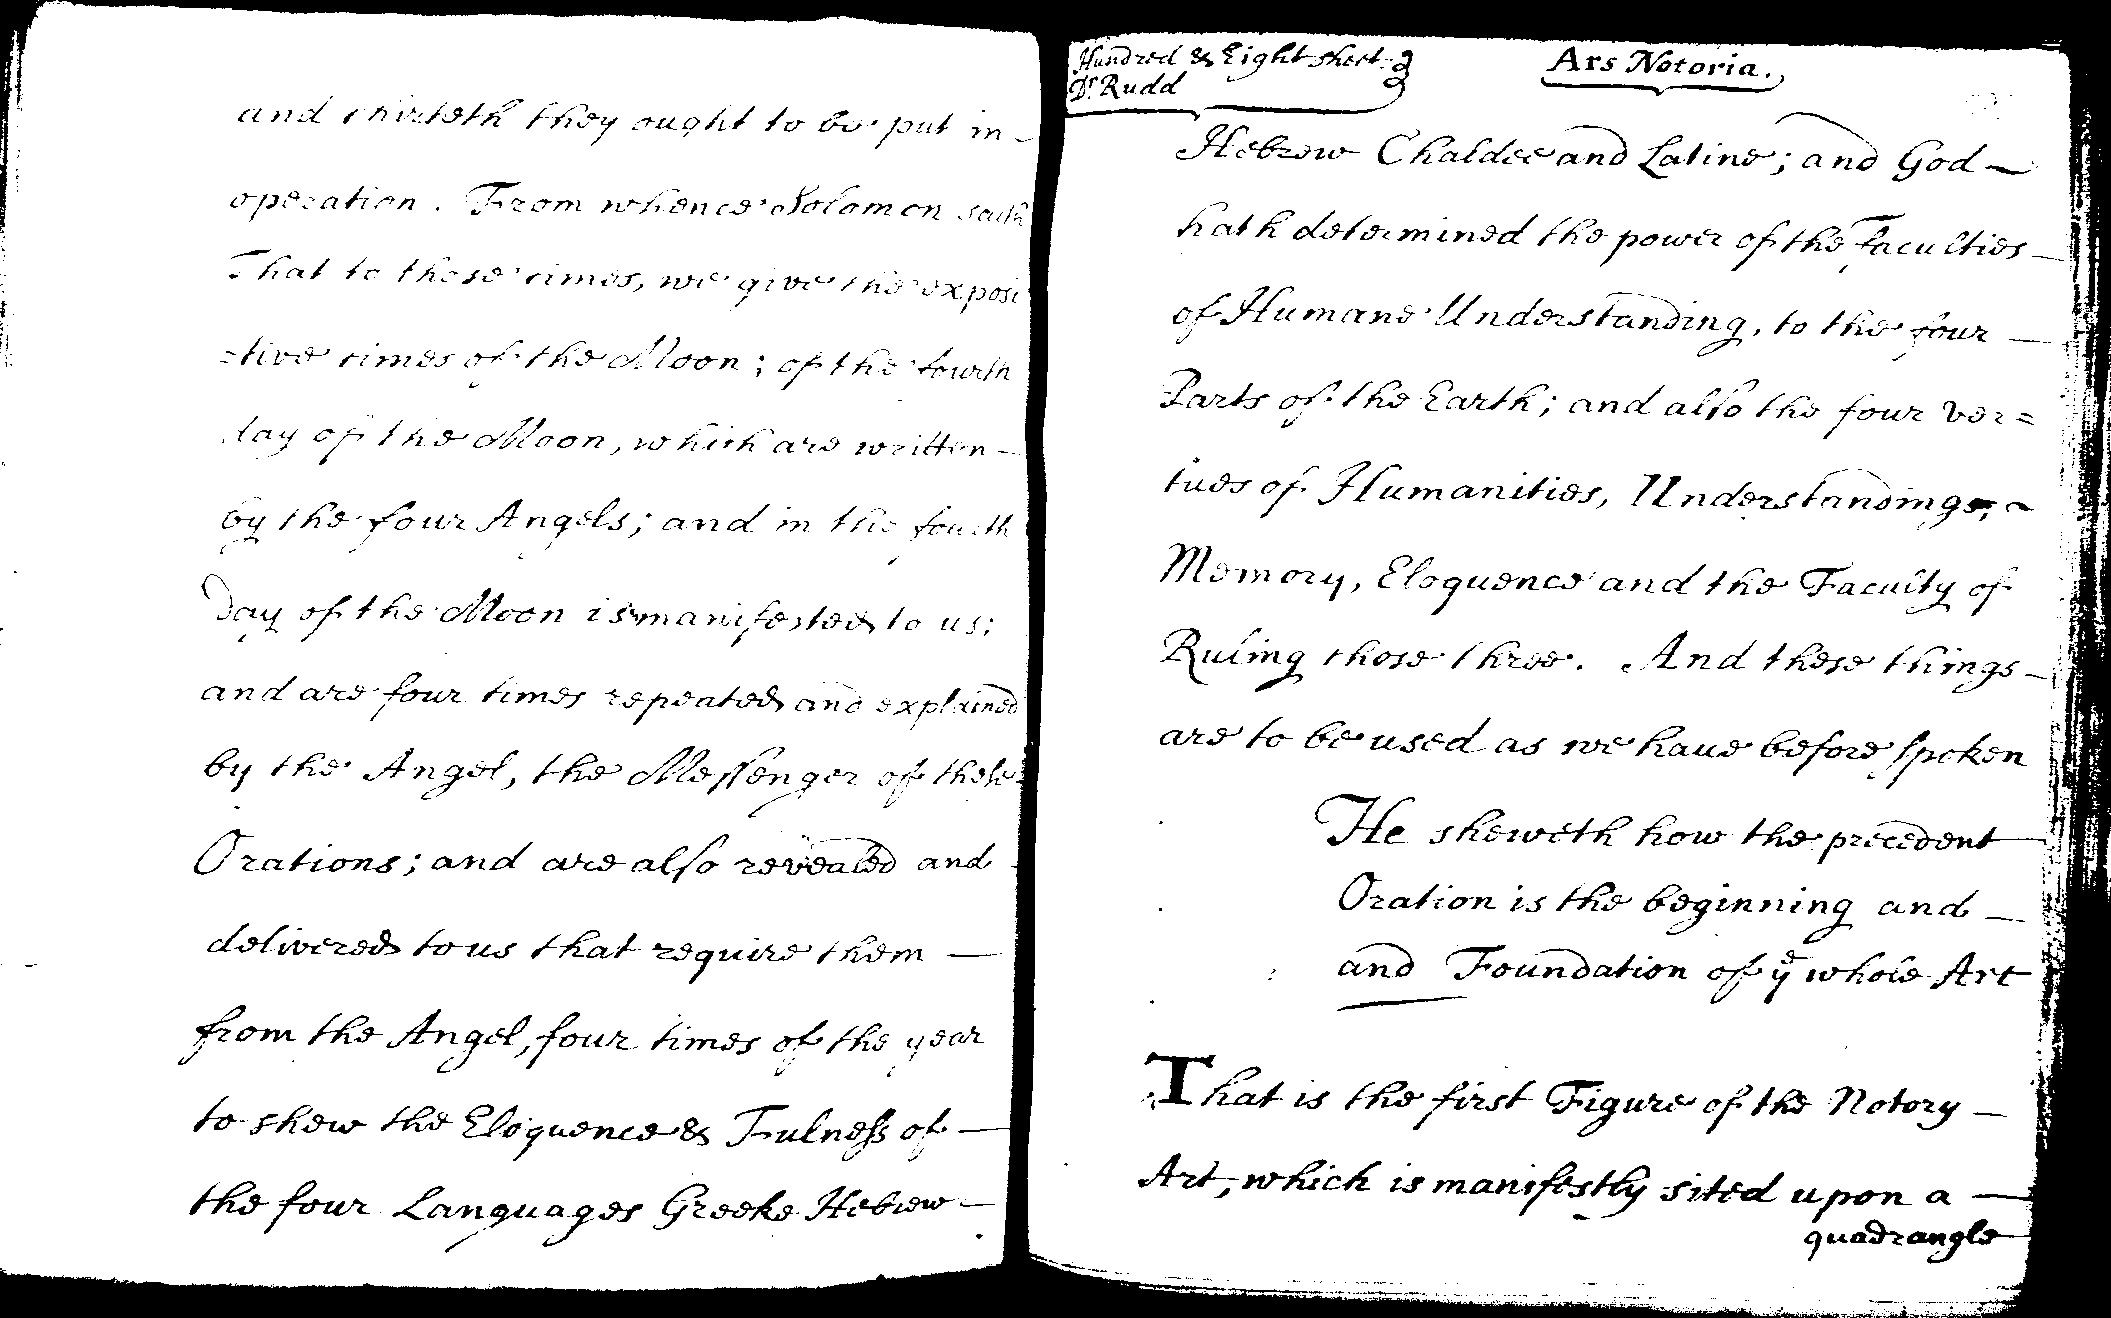 and thirteth they ought to be put in -
operation. From whence Solomon saith
That to these times, we give the exposi
=tive times of the Moon; of the fourth
day of the Moon, which are written -
by the four Angels; and in the fourth
Day of the Moon is manifested to us;
and are four times repeated and explained
by the Angel, the Messenger of these
Orations; and are also revealed and
delivered to us that require them —
from the Angel, four times of the year
to shew the Eloquence & Fulness of —
the four Languages Greeke Hebrew -
Hundred & Eight sheet
Dr Rudd
Ars Notoria.
Hebrew Chaldee and Latine; and God —
hath determined the power of the Faculties —
of Humane Understanding, to the four —
Parts of the Earth; and also the four ver=
tues of Humanities, Understandings, ~
Memory, Eloquence and the Faculty of
Ruling those three. And these things —
are to be used as we have before spoken
He sheweth how the precedent
Oration is the beginning and —
and Foundation of ye whole Art
That is the first Figure of the Notory —
Art, which is manifestly sited upon a —
quadrangle